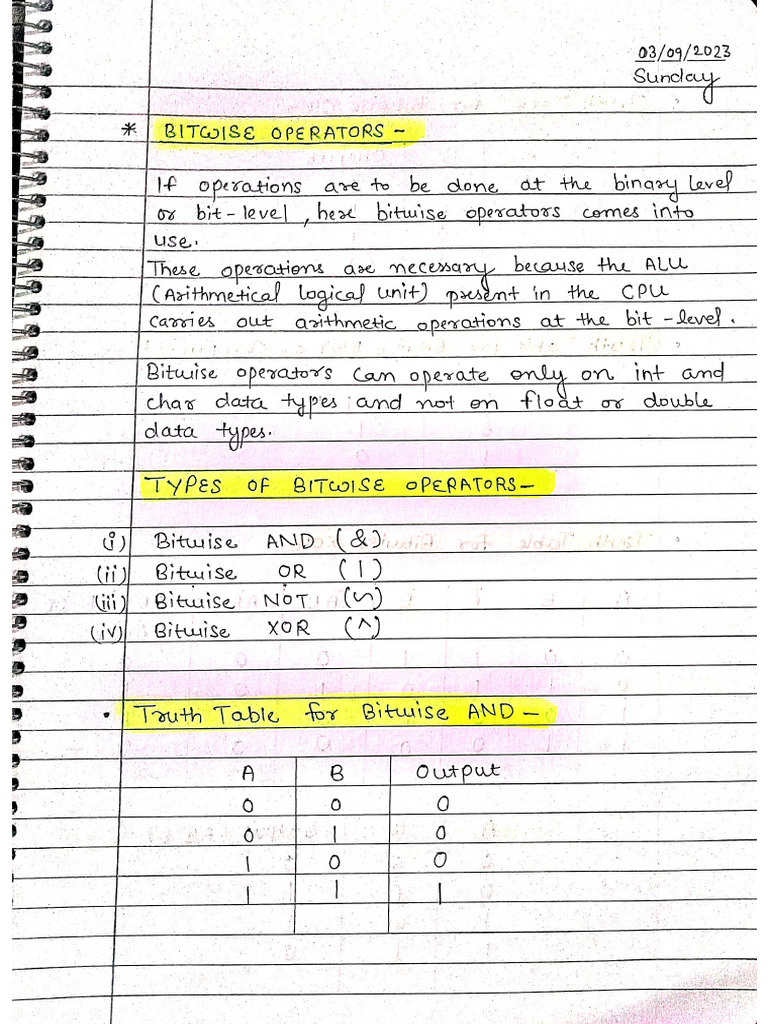 03/09/2023
Sunday
* BITWISE OPERATORS -
If operations are to be done at the binary level
or bit-level, here bitwise operators comes into
use.
These operations are necessary because the ALU
(Arithmetical logical unit) present in the CPU
carries out arithmetic operations at the bit-level.
Bitwise operators can operate only on int and
char data types and not on float or double
data types.
TYPES OF BITWISE OPERATORS-
(i) Bitwise AND (&)
(ii) Bitwise OR (|)
(iii) Bitwise NOT (~)
(iv) Bitwise XOR (^)
• Truth Table for Bitwise AND -
A B Output
0 0 0
0 1 0
1 0 0
1 1 1